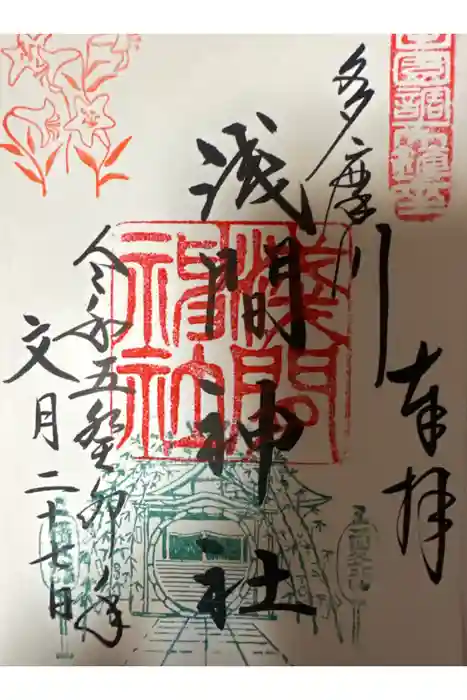 奉拝
多摩川
浅間神社
令和五癸卯年
文月二十七日
浅間
神社